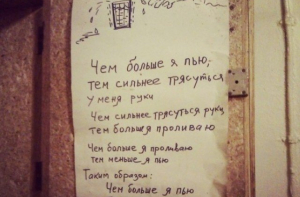 Чем больше я пью,
тем сильнее трясуться
у меня руки
Чем сильнее трясуться руки,
тем больше я проливаю
Чем больше я проливаю
тем меньше я пью
Таким образом:
Чем больше я пью